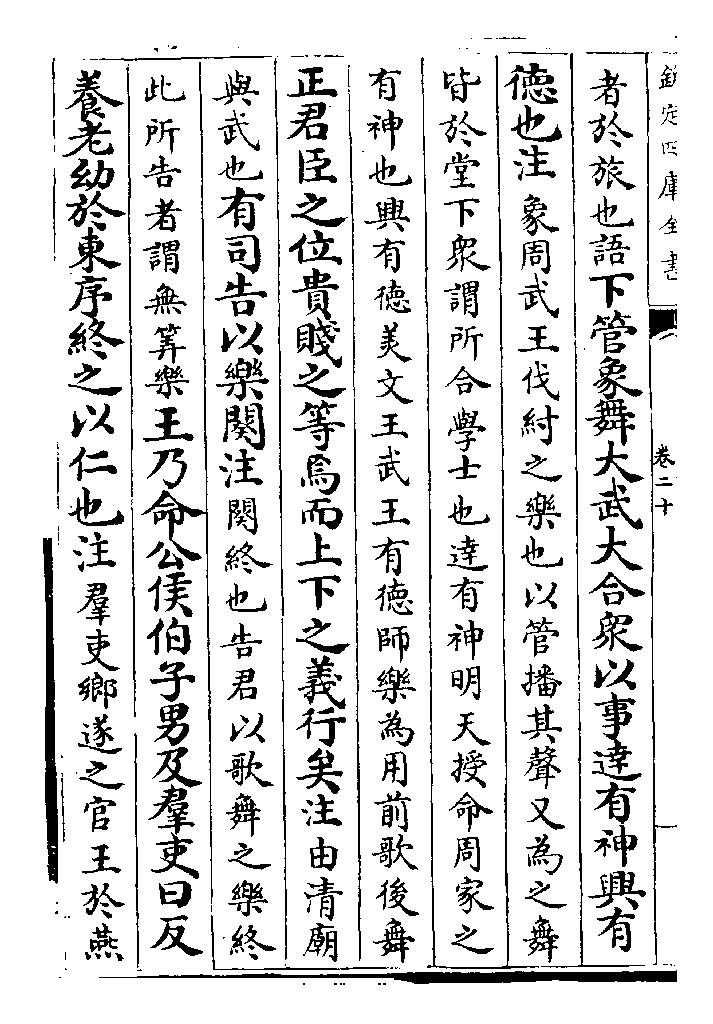 欽定四庫全書
卷二十
者於旅也語下管象舞大武大合衆以事逹有神興有
德也注象周武王伐紂之樂也以管播其聲又為之舞
皆於堂下衆謂所合學士也逹有神明天授命周家之
有神也興有德美文王武王有德師樂為用前歌後舞
正君臣之位貴賤之等焉而上下之義行矣注由清廟
與武也有司告以樂闋注闋終也告君以歌舞之樂終
此所告者謂無筭樂王乃命公侯伯子男及羣吏曰反
養老幼於東序終之以仁也注羣吏鄉遂之官王於燕